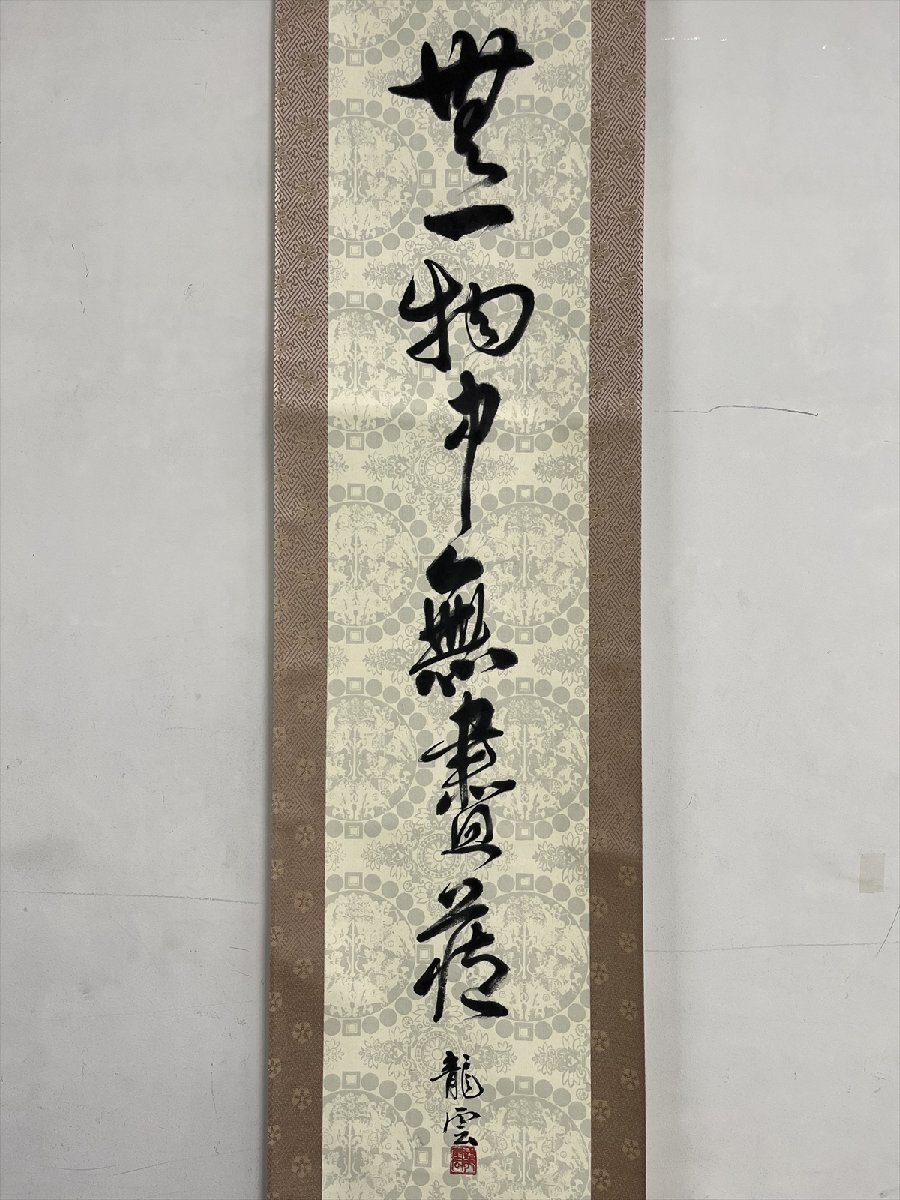 無一物中無盡蔵
龍雲